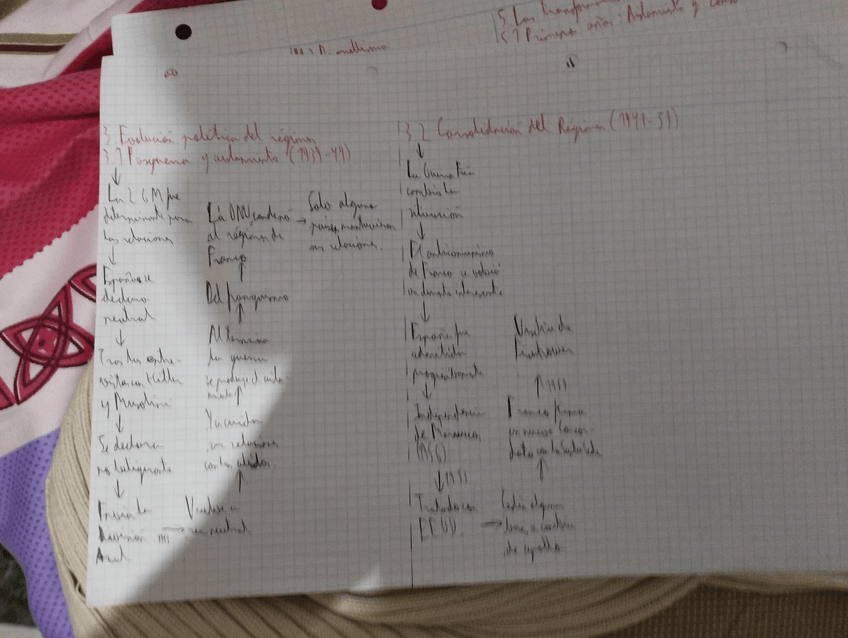 5. Las transforma
5.1 Primeros años: Aislamiento y
3. Evolución política del régimen
3.1 Posguerra y aislamiento (1939-49)
La 2 GM fue
determinante para
las relaciones
España se
declaro
neutral
Tras las entre-
vistas con Hitler
y Musolini
Se declara
no beligerante
Envia la
División
Azul
Vuelve a
ser neutral
Ya cuida
sus relaciones
con los aliados
Al terminar
la guerra
se produjo el aisla
miento
Del franquismo
La ONU condenó
al régimen de
Franco
Solo algunos
países mantuvieron
sus relaciones.
3.2 Consolidación del Régimen (1949-59)
La Guerra Fría
cambia la
situación
El anticomunismo
de Franco se volvió
interesante
España fue
admitida
progresivamente
Independencia
de Marruecos
1953
Tratado con
EEUU.
Cedía algunas
bases a cambio
de apoyo
Franco firma
un nuevo Concor
dato con la Santa Sede
1959
Visita de
Eisenhower